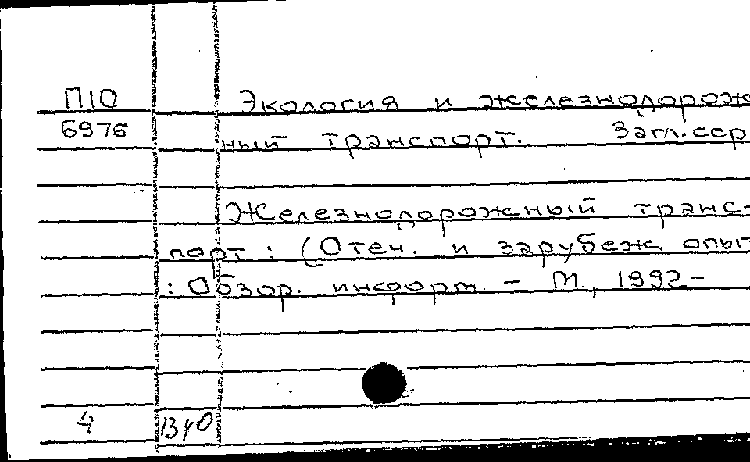 П10 Экология и железнодорож
6976 ный транспорт. Загл.сер
Железнодорожный транс-
порт : (Отеч. и зарубеж. опыт
: Обзор. информ. - М., 1992-
4